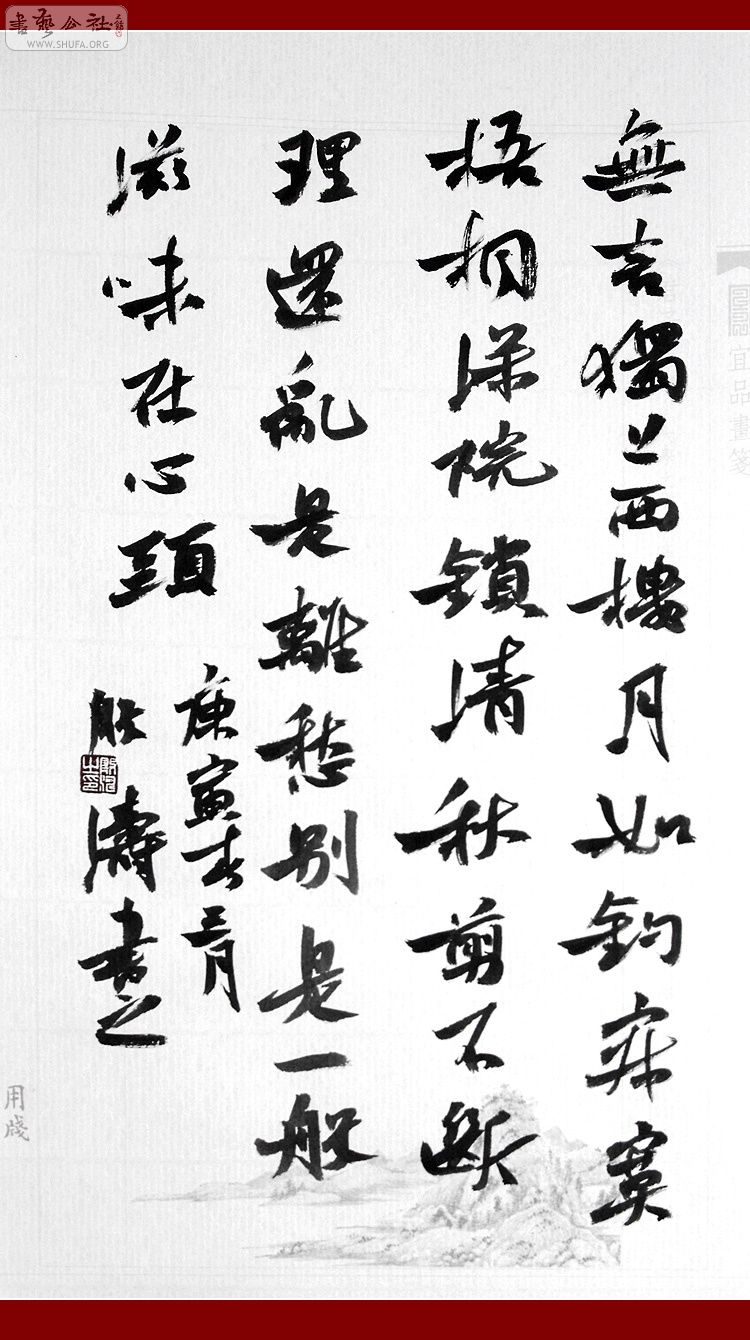 書藝公社
WWW.SHUFA.ORG
宜品畫箋
無言獨上西樓月如鈎寂寞
梧桐深院鎖清秋剪不斷
理還亂是離愁別是一般
滋味在心頭
庚寅春三月
殷濤書之
用牋